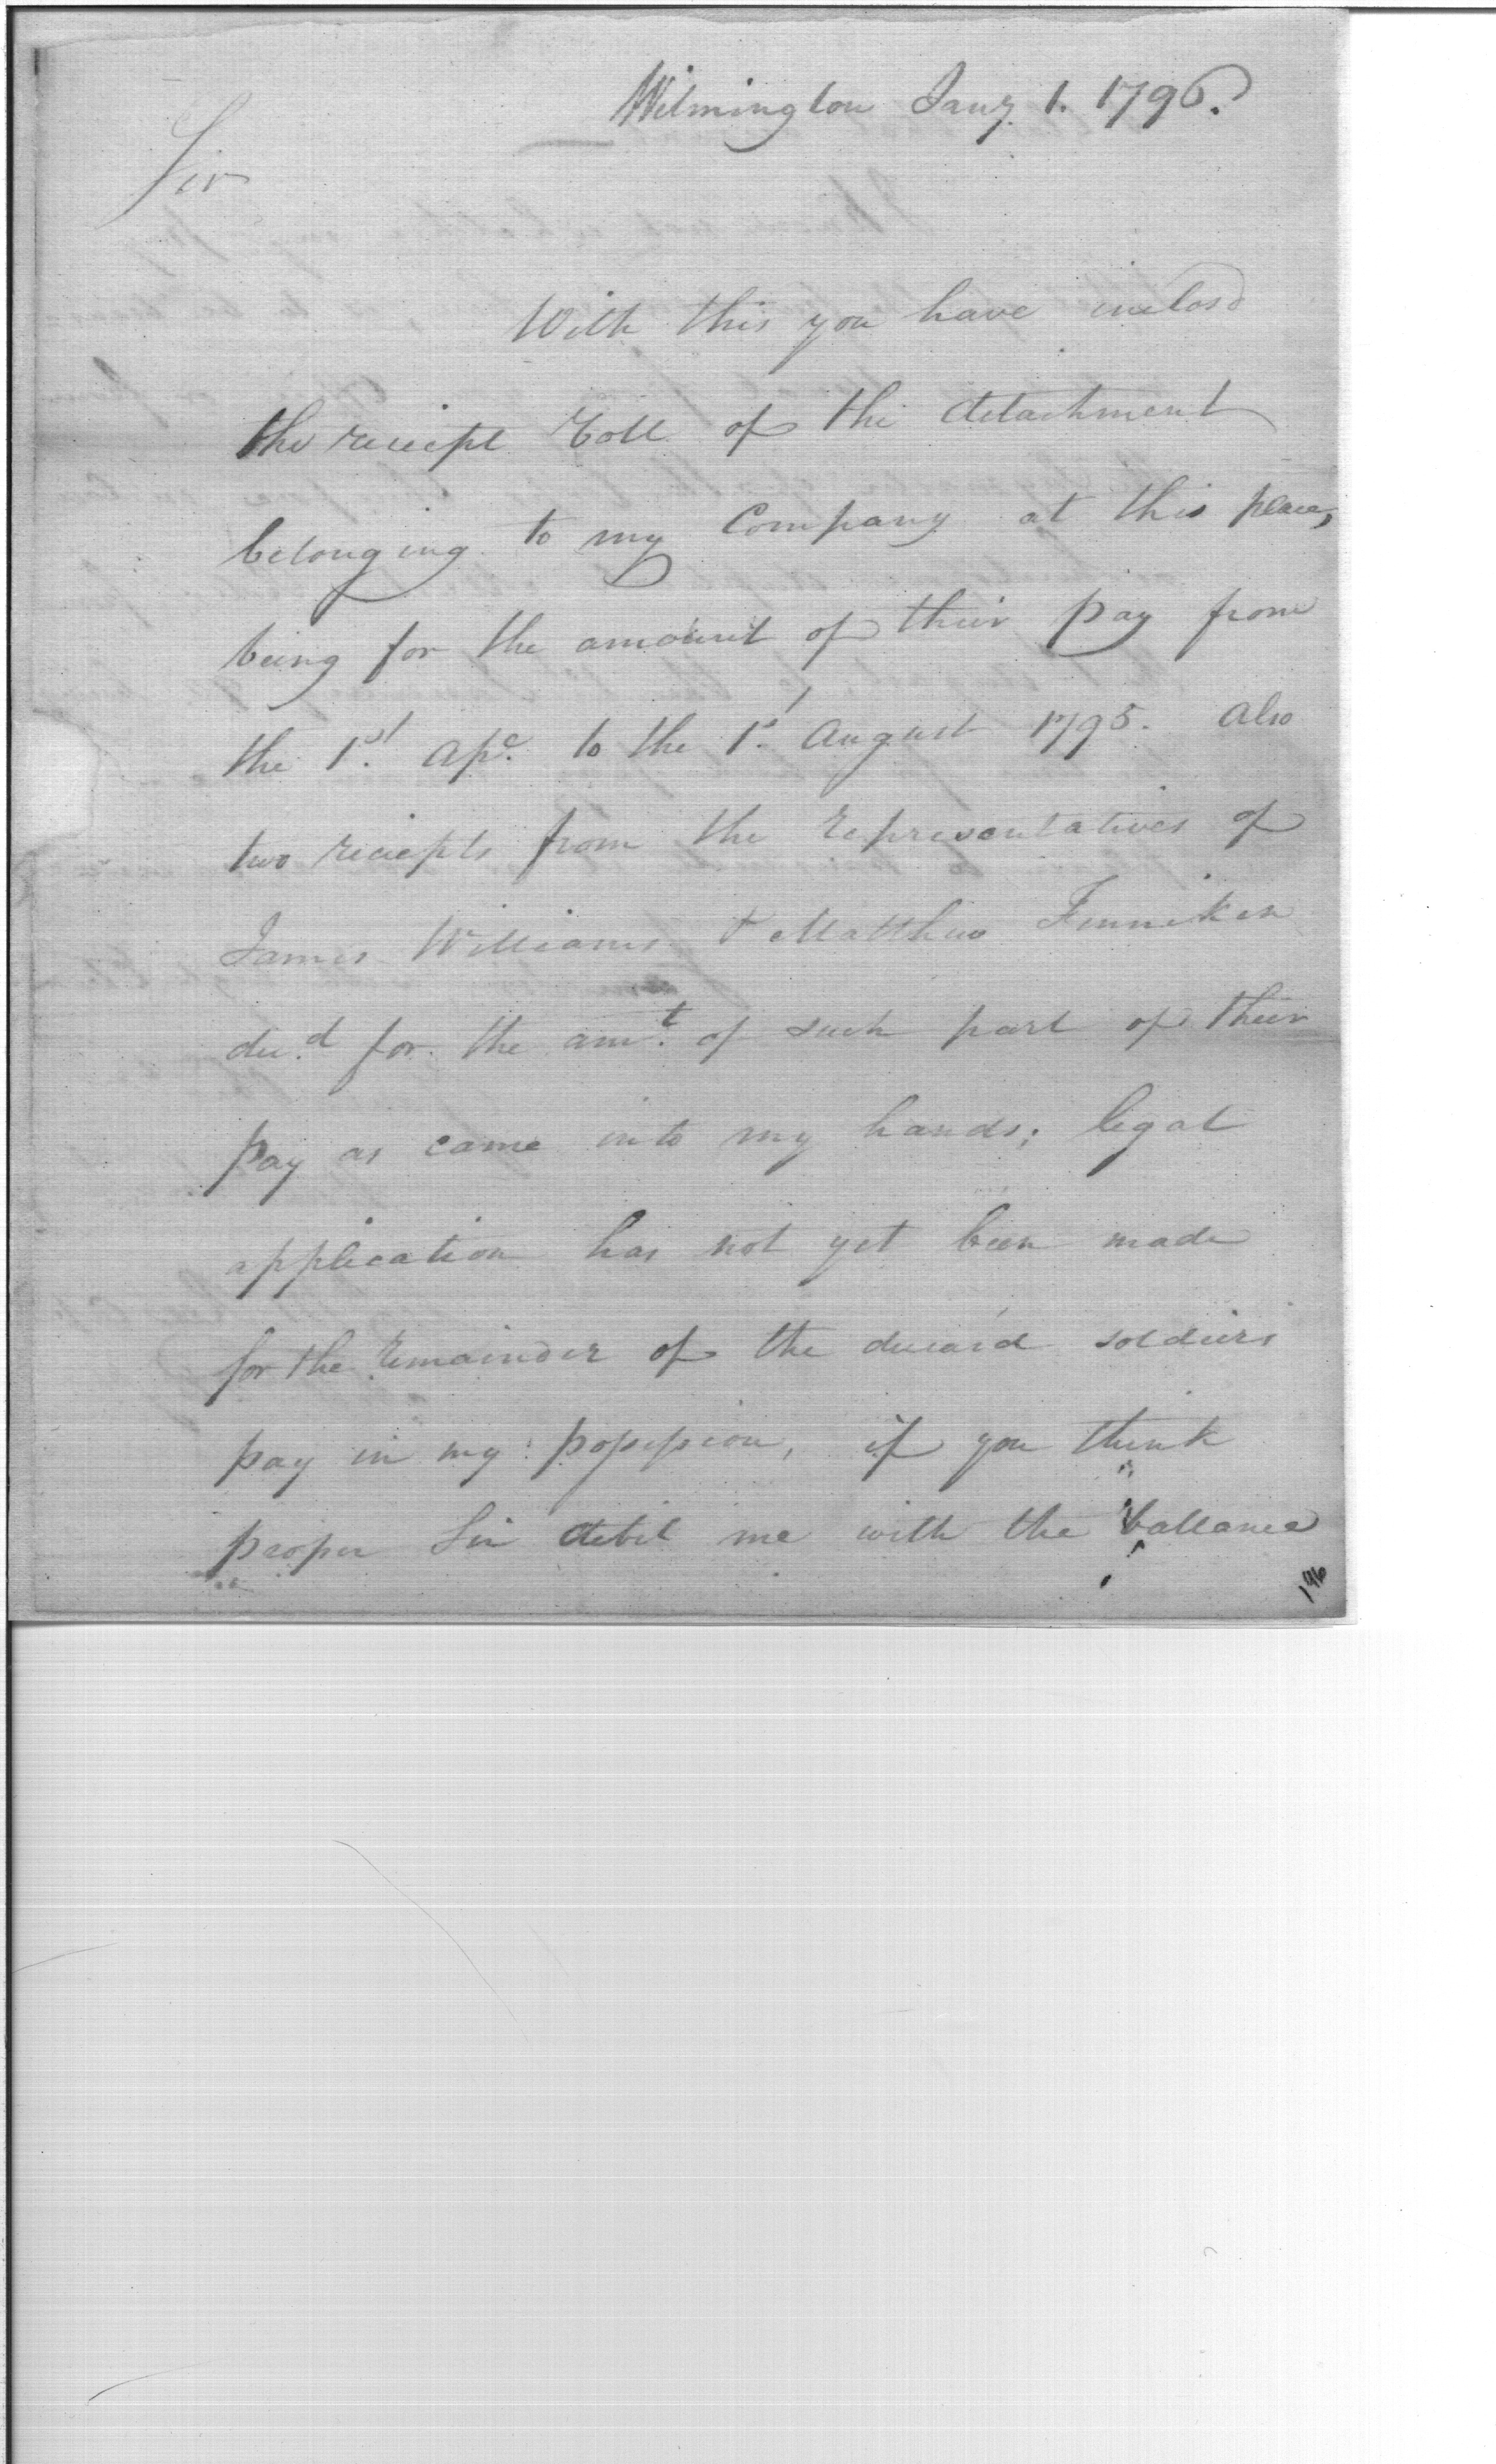 Wilmington Jany. 1. 1796.
Sir
With this you have inclosd
the reciept Roll of the detachment
belonging to my Company at this place,
being for the amount of their pay from
the 1st. Apl. to the 1st. August 1795. Also
two reciepts from the representatives of
James Williams & Matthew Finniken
decd. for the amt. of such part of their
pay as came into my hands; legal
application has not yet been made
for the remainder of the deceas'd soldiers
pay in my possession, if you think
proper Sir debit me with the ballance
196